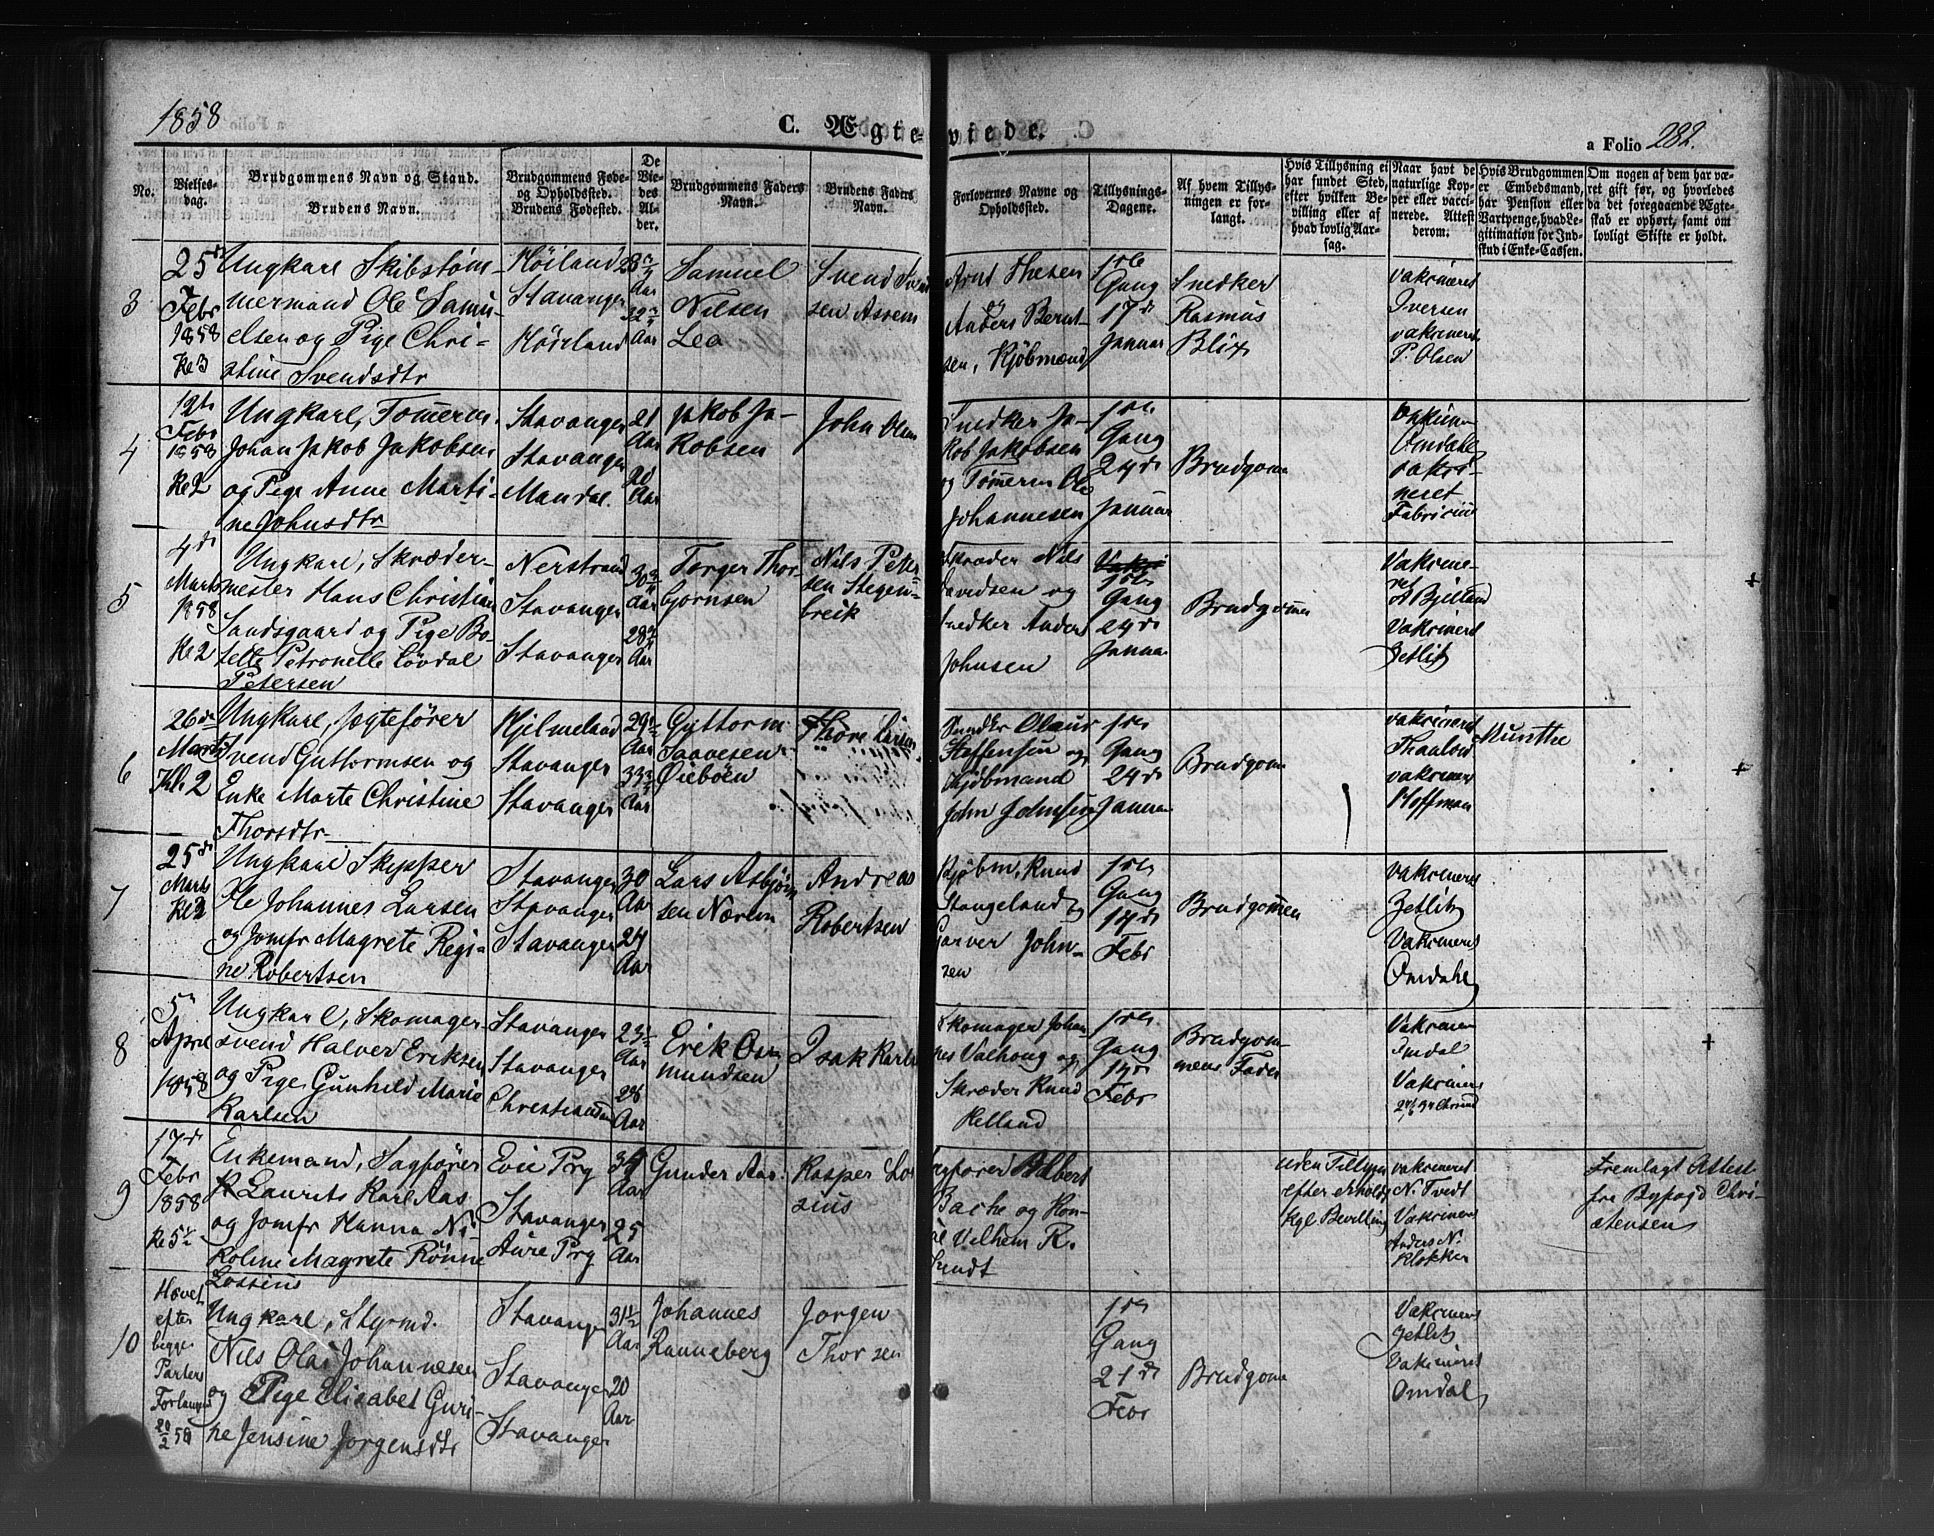 1858
C. Ægte-
viede.
a Folio 282.
No.
Vielses-
dag.
Brudgommens Navn og Stand.
Brudens Navn.
Brudgommens Føde-
og Opholdssted.
Brudens Fødested.
De
Vie-
des
Al-
der.
Brudgommens Faders
Navn.
Brudens Faders
Navn.
Forlovernes Navne og
Opholdssted.
Tillysnings-
Dagene.
Af hvem Tillys-
ningen er for-
langt.
Hvis Tillysning ei
har fundet Sted,
efter hvilken Be-
villing eller af
hvad lovlig Aar-
sag.
Naar havt de
naturlige Kop-
per eller vacci-
nerede. Attest
derom:
Hvis Brudgommen
er Embedsmand,
har Pension eller
Vartpenge, hvad Le-
gitimation for Ind-
skud i Enke-Cassen.
Om nogen af dem har væ-
ret gift før, og hvorledes
da det foregaaende Ægte-
skab er ophørt, samt om
lovligt Skifte er holdt.
3
25
Febr
1858
Kl 3
Ungkarl Skibstøm-
mermand Ole Samu-
elsen og Pige Chri-
stine Svendsdtr
Höiland
Stavanger
Höiland
Aar
Aar
Samuel
Nilsen
Lea
Svend
sen
Arnt Thesen
og
Anders Bernt-
sen, Kjöbmænd
1ste
Gang
17de
Januar
Snedker
Rasmus
Blix
vakcineret
Iversen
vakcineret
P. Olsen
4
12te
Febr
1858
Kl 2
Ungkarl, Tömerm.
Johan Jakob Jakobsen
og Pige Anne Marti-
ne Johnsdtr
Stavanger
Stavanger
Mandal.
21
Aar
20
Aar
Jakob Ja-
kobsen
John Olsen
Snedker Ja-
kob Jakobsen
og Tömerm Ole
Johannesen
1ste
Gang
24de
Januar
Brudgom
Omdahl
vakci-
neret
Fabricius
5
4de
Marts
1858
Kl 2
Ungkarl, Skræder-
mester Hans Christian
Sandsgaard og Pige Bo-
lette Petronelle Lövdal
Petersen
Nerstrand
Stavanger
Stavanger
30
Aar
28
Aar
Torger Thor-
bjørnsen
Nils Peter-
sen Stegen-
breik
Skræder Nils
Davidsen og
Snedker Anders
Johnsen
1ste
Gang
24de
Januar
Brudgommen
Vakcine-
ret
Bjelland
Vakcineret
Zetlitz
+
6
26de
Marts
Kl. 2
Ungkarl, Jægtefører
Svend Guttormsen og
Enke Marte Christine
Thorsdtr
Hjelmeland
Stavanger
Stavanger
29
Aar
33
Aar
Guttorm
Øiebøen
Thore Larsen
Olaus
Steffensen og
Kjöbmand
John Johnsen
1ste
Gang
24de
Januar
Brudgom
vakcineret
Thaulow
vakcineret
Hoffman
Munthe
+
7
25de
Marts
Kl 2
Ungkarl Skipper
Ole Johannes Larsen
og Jomfr Magrete Regi-
ne Robertsen
Stavanger
Stavanger
Stavanger
30
Aar
24
Aar
Lars Asbjørn-
sen
Andreas
Robertsen
Kjöbm. Knud
Stangeland og
Garver John-
sen
1ste
Gang
14de
Febr
Brudgommen
vakcineret
Zetlitz
Vakcineret
Omdahl
8
5
April
1858
Ungkarl, Skomager-
svend Halver Eriksen
og Pige Gunhild Marie
Karlsen
Stavanger
Stavanger
Christiansand
23
Aar
Aar
Erik Os-
mundsen
Isak Karlsen
Skomager Johan-
nes Valhoug og
Skræder Knud
Helland
1ste
Gang
Febr
Brudgom-
mens Fader
Omdal
Vakcineret
+
9
17de
Febr
1858
Kl 5½
Enkemand, Sagförer
Laurits Karl Aas
og Jomfr Hanna Ni-
koline Magrete Rönne
Lossius
Evie Prg
Stavanger
Aure Prg
Aar
25
Aar
Gunder Aas.
Kasper Los-
sius
Sagförer Albert
Bache og Kon-
sul Vilhelm R.
Sundt
uden Tillysn
efter erholdt
Kgl Bevilling
vakcineret
N. Tvedt
Vakcineret
Anders N.
Klokker
Fremlagt Attest
fra Byfogd Chri-
stensen
10
Hævet
efter
begge
Parters
Forlangend
20/2 58
Ungkarl, Styrmd.
Nils Olai Johannesen
og Pige Elisabet Guri-
ne Jensine Jørgensdtr
Stavanger
Stavanger
Stavanger
31½
Aar
20
Aar
Johannes
Ranneberg
Jorgen
Thorsen
1ste
Gang
21de
Febr
Brudgom
Vakcineret
Zetlitz
Vakcineret
Omdal